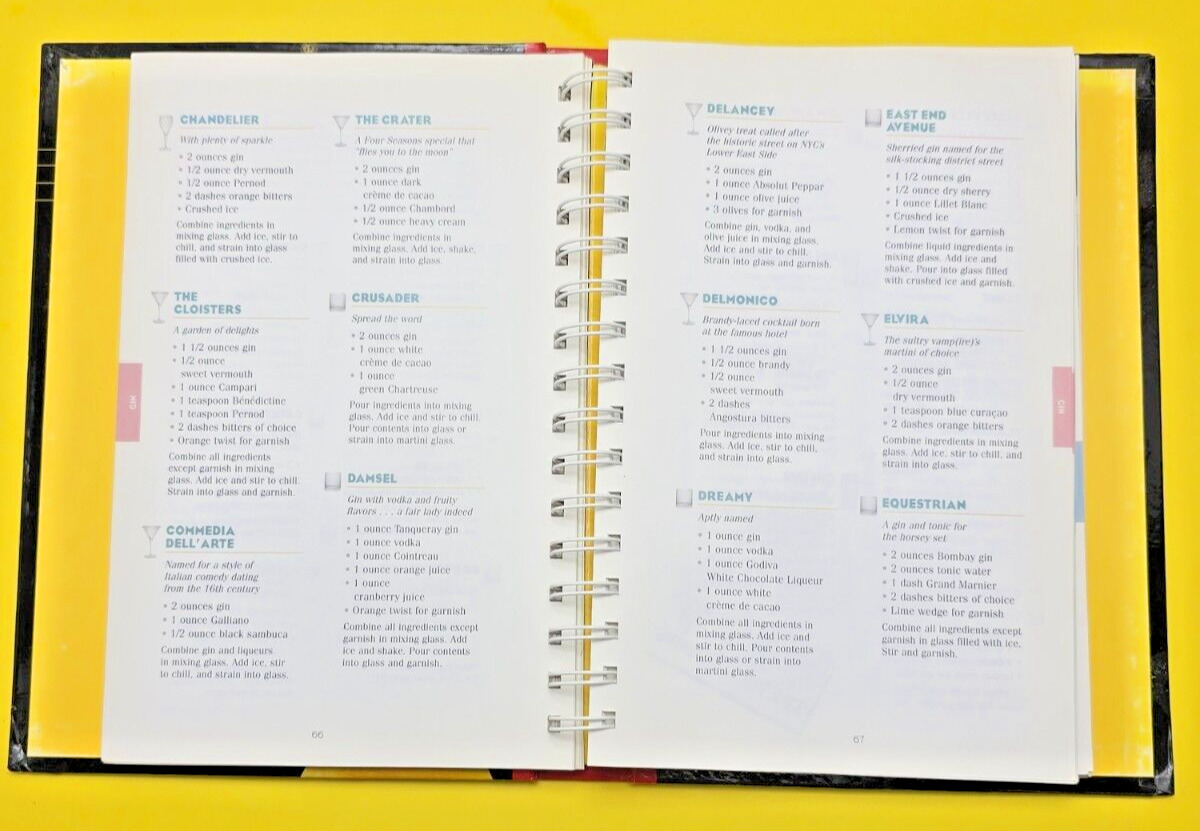 CHANDELIER
With plenty of sparkle
• 2 ounces gin
• 1/2 ounce dry vermouth
• 1/2 ounce Pernod
• 2 dashes orange bitters
• Crushed ice
Combine ingredients in
mixing glass. Add ice, stir to
chill, and strain into glass
filled with crushed ice.
THE
CLOISTERS
A garden of delights
• 1 1/2 ounces gin
• 1/2 ounce
sweet vermouth
• 1 ounce Campari
• 1 teaspoon Bénédictine
• 1 teaspoon Pernod
• 2 dashes bitters of choice
• Orange twist for garnish
Combine all ingredients
except garnish in mixing
glass. Add ice and stir to chill.
Strain into glass and garnish.
COMMEDIA
DELL'ARTE
Named for a style of
Italian comedy dating
from the 16th century
• 2 ounces gin
• 1 ounce Galliano
• 1/2 ounce black sambuca
Combine gin and liqueurs
in mixing glass. Add ice, stir
to chill, and strain into glass.
THE CRATER
A Four Seasons special that
"flies you to the moon"
• 2 ounces gin
• 1 ounce dark
crème de cacao
• 1/2 ounce Chambord
• 1/2 ounce heavy cream
Combine ingredients in
mixing glass. Add ice, shake,
and strain into glass.
CRUSADER
Spread the word
• 2 ounces gin
• 1 ounce white
crème de cacao
• 1 ounce
green Chartreuse
Pour ingredients into mixing
glass. Add ice and stir to chill.
Pour contents into glass or
strain into martini glass.
DAMSEL
Gin with vodka and fruity
flavors . . . a fair lady indeed
• 1 ounce Tanqueray gin
• 1 ounce vodka
• 1 ounce Cointreau
• 1 ounce orange juice
• 1 ounce
cranberry juice
• Orange twist for garnish
Combine all ingredients except
garnish in mixing glass. Add
ice and shake. Pour contents
into glass and garnish.
GIN
66
DELANCEY
Olivey treat called after
the historic street on NYC's
Lower East Side
• 2 ounces gin
• 1 ounce Absolut Peppar
• 1 ounce olive juice
• 3 olives for garnish
Combine gin, vodka, and
olive juice in mixing glass.
Add ice and stir to chill.
Strain into glass and garnish.
DELMONICO
Brandy-laced cocktail born
at the famous hotel
• 1 1/2 ounces gin
• 1/2 ounce brandy
• 1/2 ounce
sweet vermouth
• 2 dashes
Angostura bitters
Pour ingredients into mixing
glass. Add ice, stir to chill,
and strain into glass.
DREAMY
Aptly named
• 1 ounce gin
• 1 ounce vodka
• 1 ounce Godiva
White Chocolate Liqueur
• 1 ounce white
crème de cacao
Combine all ingredients in
mixing glass. Add ice and
stir to chill. Pour contents
into glass or strain into
martini glass.
EAST END
AVENUE
Sherried gin named for the
silk-stocking district street
• 1 1/2 ounces gin
• 1/2 ounce dry sherry
• 1 ounce Lillet Blanc
• Crushed ice
• Lemon twist for garnish
Combine liquid ingredients in
mixing glass. Add ice and
shake. Pour into glass filled
with crushed ice and garnish.
ELVIRA
The sultry vamp(ire)'s
martini of choice
• 2 ounces gin
• 1/2 ounce
dry vermouth
• 1 teaspoon blue curaçao
• 2 dashes orange bitters
Combine ingredients in mixing
glass. Add ice, stir to chill, and
strain into glass.
EQUESTRIAN
A gin and tonic for
the horsey set
• 2 ounces Bombay gin
• 2 ounces tonic water
• 1 dash Grand Marnier
• 2 dashes bitters of choice
• Lime wedge for garnish
Combine all ingredients except
garnish in glass filled with ice.
Stir and garnish.
GIN
67